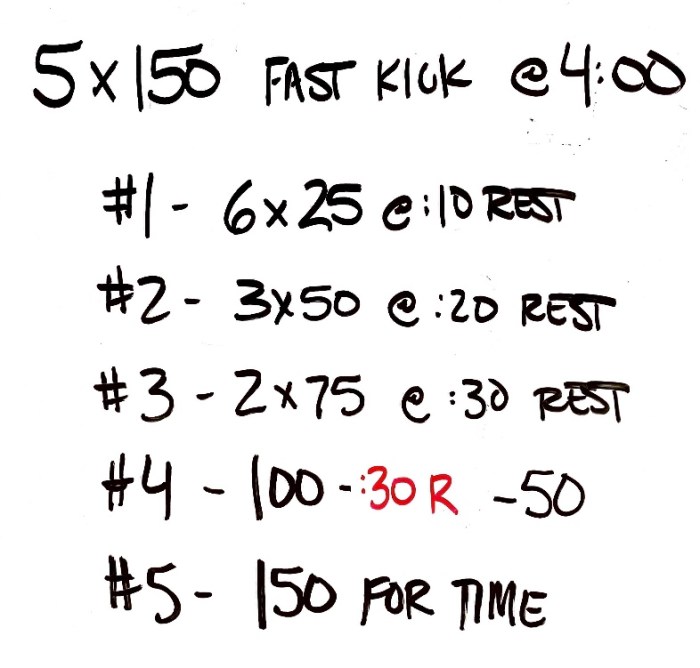 5x150 FAST KICK @4:00
#1 - 6x25 @:10 REST
#2 - 3x50 @ :20 REST
#3 - 2x75 @ :30 REST
#4 - 100 - :30 R - 50
#5 - 150 FOR TIME